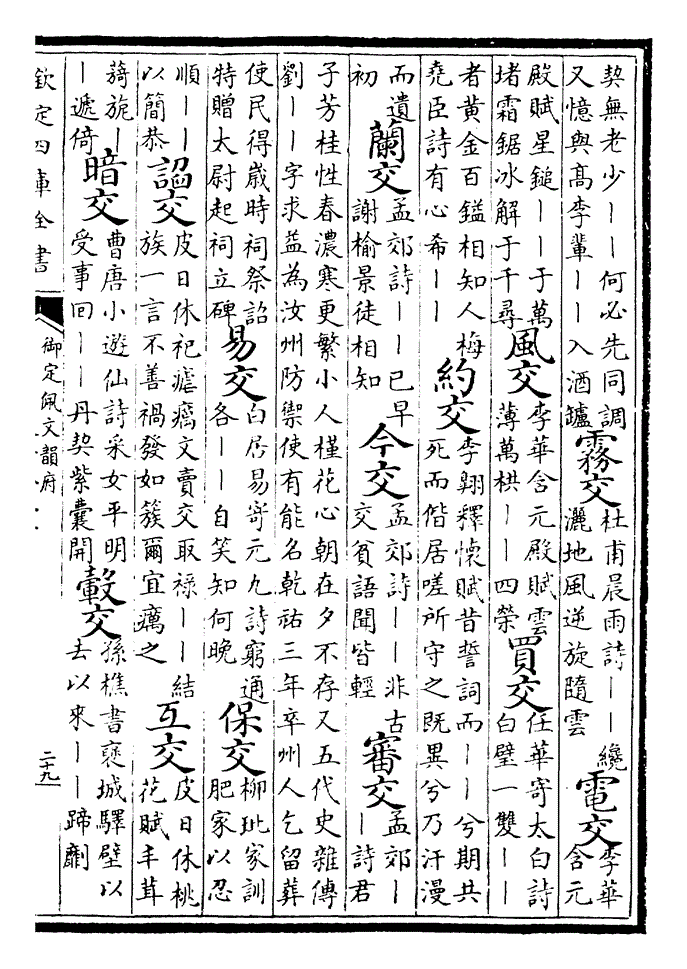 契無老少丨丨何必先同調
又憶與高李輩丨丨入酒罏
霧交
杜甫晨雨詩丨丨纔
灑地風逆旋隨雲
電交
李華
含元
殿賦星鎚丨丨于萬
堵霜鋸冰解于千尋
風交
李華含元殿賦雲
薄萬栱丨丨四榮
買交
任華寄太白詩
白璧一雙丨丨
者黄金百鎰相知人 梅
堯臣詩有心希丨丨
約交
李翺釋懷賦昔誓詞而丨丨兮期共
死而偕居嗟所守之既異兮乃汗漫
而遺
初
蘭交
孟郊詩丨丨已早
謝榆景徒相知
今交
孟郊詩丨丨非古
交貧語聞皆輕
審交
孟郊丨
丨詩君
子芳桂性春濃寒更繁小人槿花心朝在夕不存又五代史雜傳
劉丨丨字求益為汝州防禦使有能名乾祐三年卒州人乞留葬
使民得歲時祠祭詔
特贈太尉起祠立碑
易交
白居易寄元九詩窮通
各丨丨自笑知何晚
保交
柳玭家訓
肥家以忍
順丨丨
以簡恭
諂交
皮日休祀瘧癘文賣交取祿丨丨結
族一言不善禍發如簇爾宜癘之
互交
皮日休桃
花賦丰茸
旖旎丨
丨遞倚
暗交
曹唐小遊仙詩采女平明
受事回丨丨丹契紫囊開
轂交
孫樵書褒城驛壁以
去以來丨丨蹄劘
欽定四庫全書
御定佩文韻府
二十九